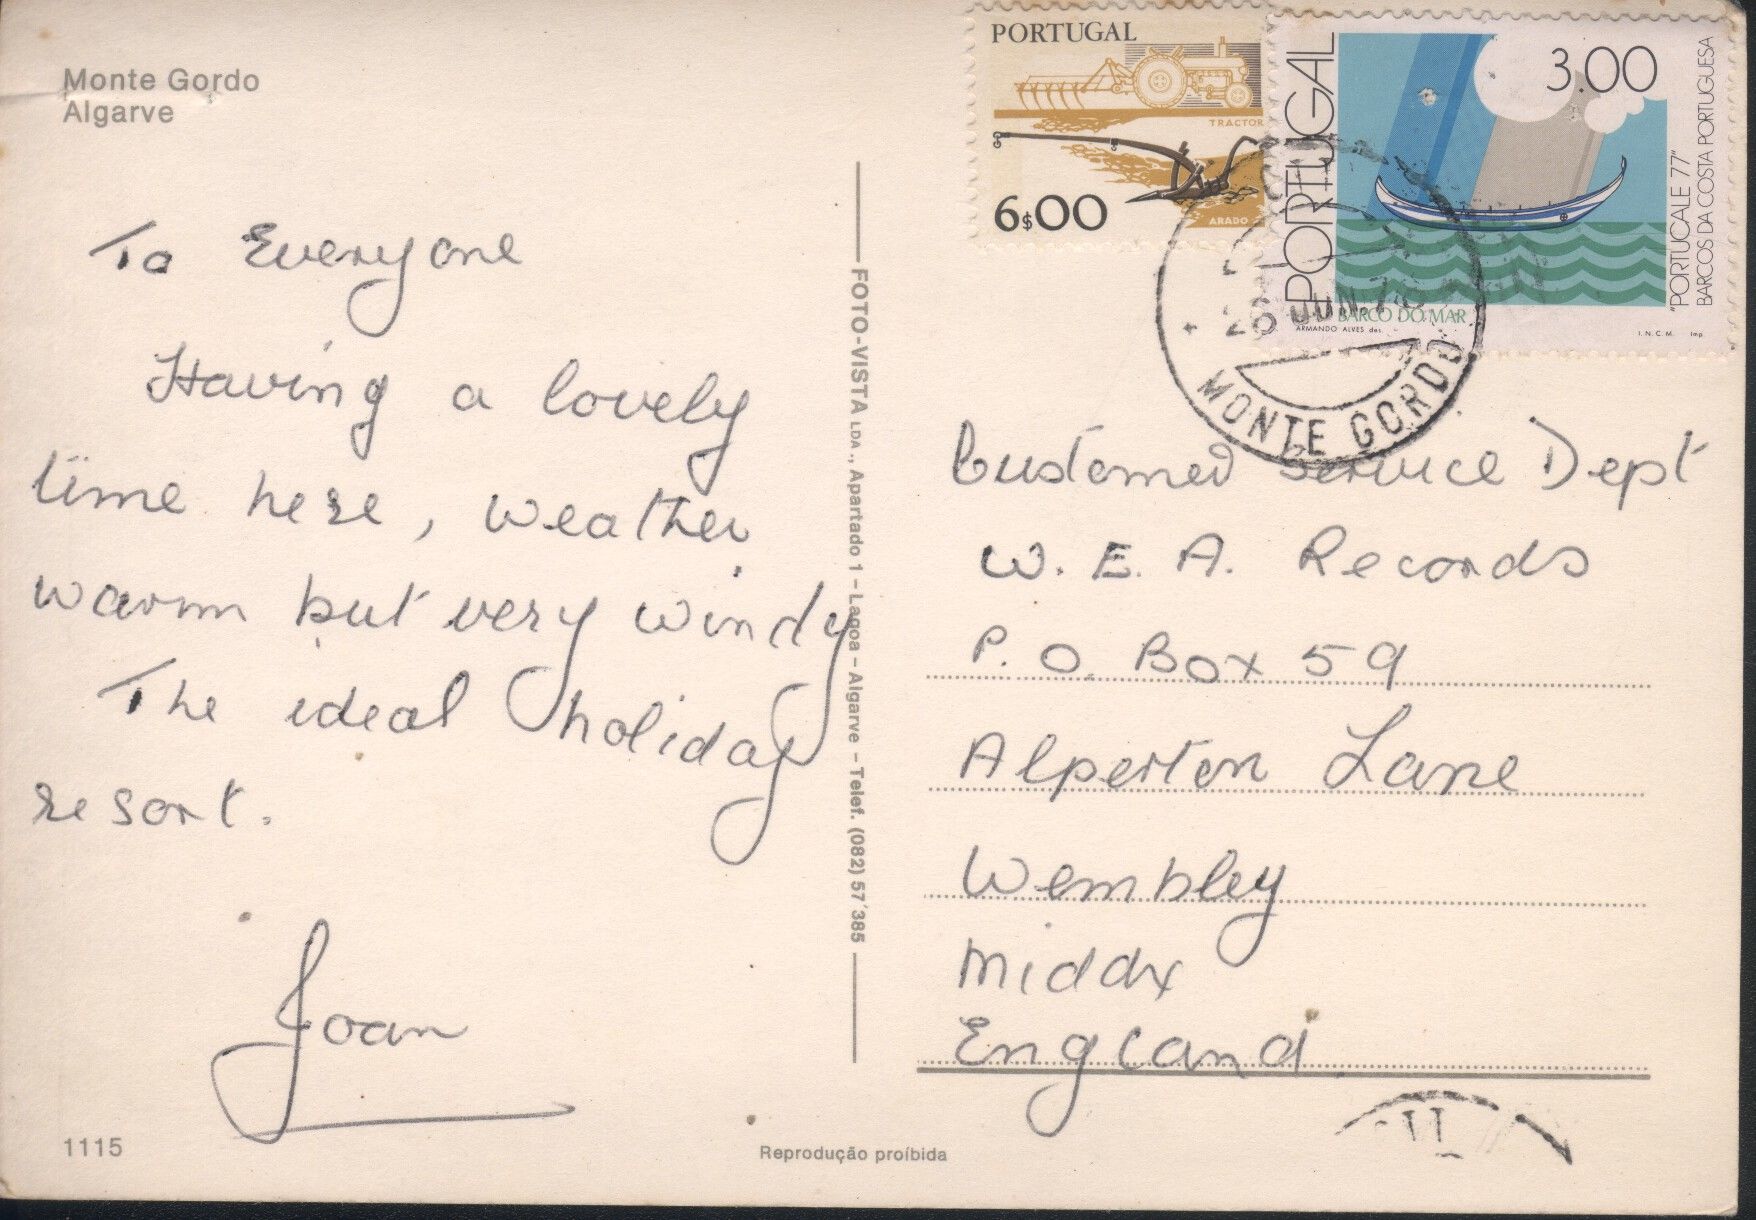 Monte Gordo
Algarve
To Everyone
Having a lovely
time here, weather
warm but very windy
The ideal holiday
resort.
Joan
1115
FOTO-VISTA LDA., Apartado 1 - Lagoa - Algarve - Telef. (082) 57'385
Reprodução proíbida
PORTUGAL
TRACTOR
6$00
ARADO
PORTUGAL
3.00
"PORTUCALE 77"
BARCOS DA COSTA PORTUGUESA
BARCO DO MAR
ARMANDO ALVES des.
I.N.C.M. Imp.
26 JUN.
MONTE GORDO
Customer Service Dept
W. E. A. Records
P. O. Box 59
Alperton Lane
Wembley
Middx
England